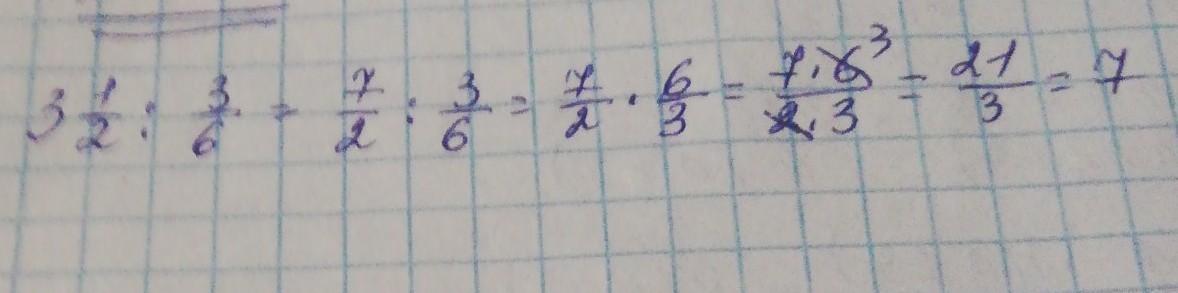 3 1/2 : 3/6 = 7/2 : 3/6 = 7/2 · 6/3 = 7·6³/2·3 = 21/3 = 7